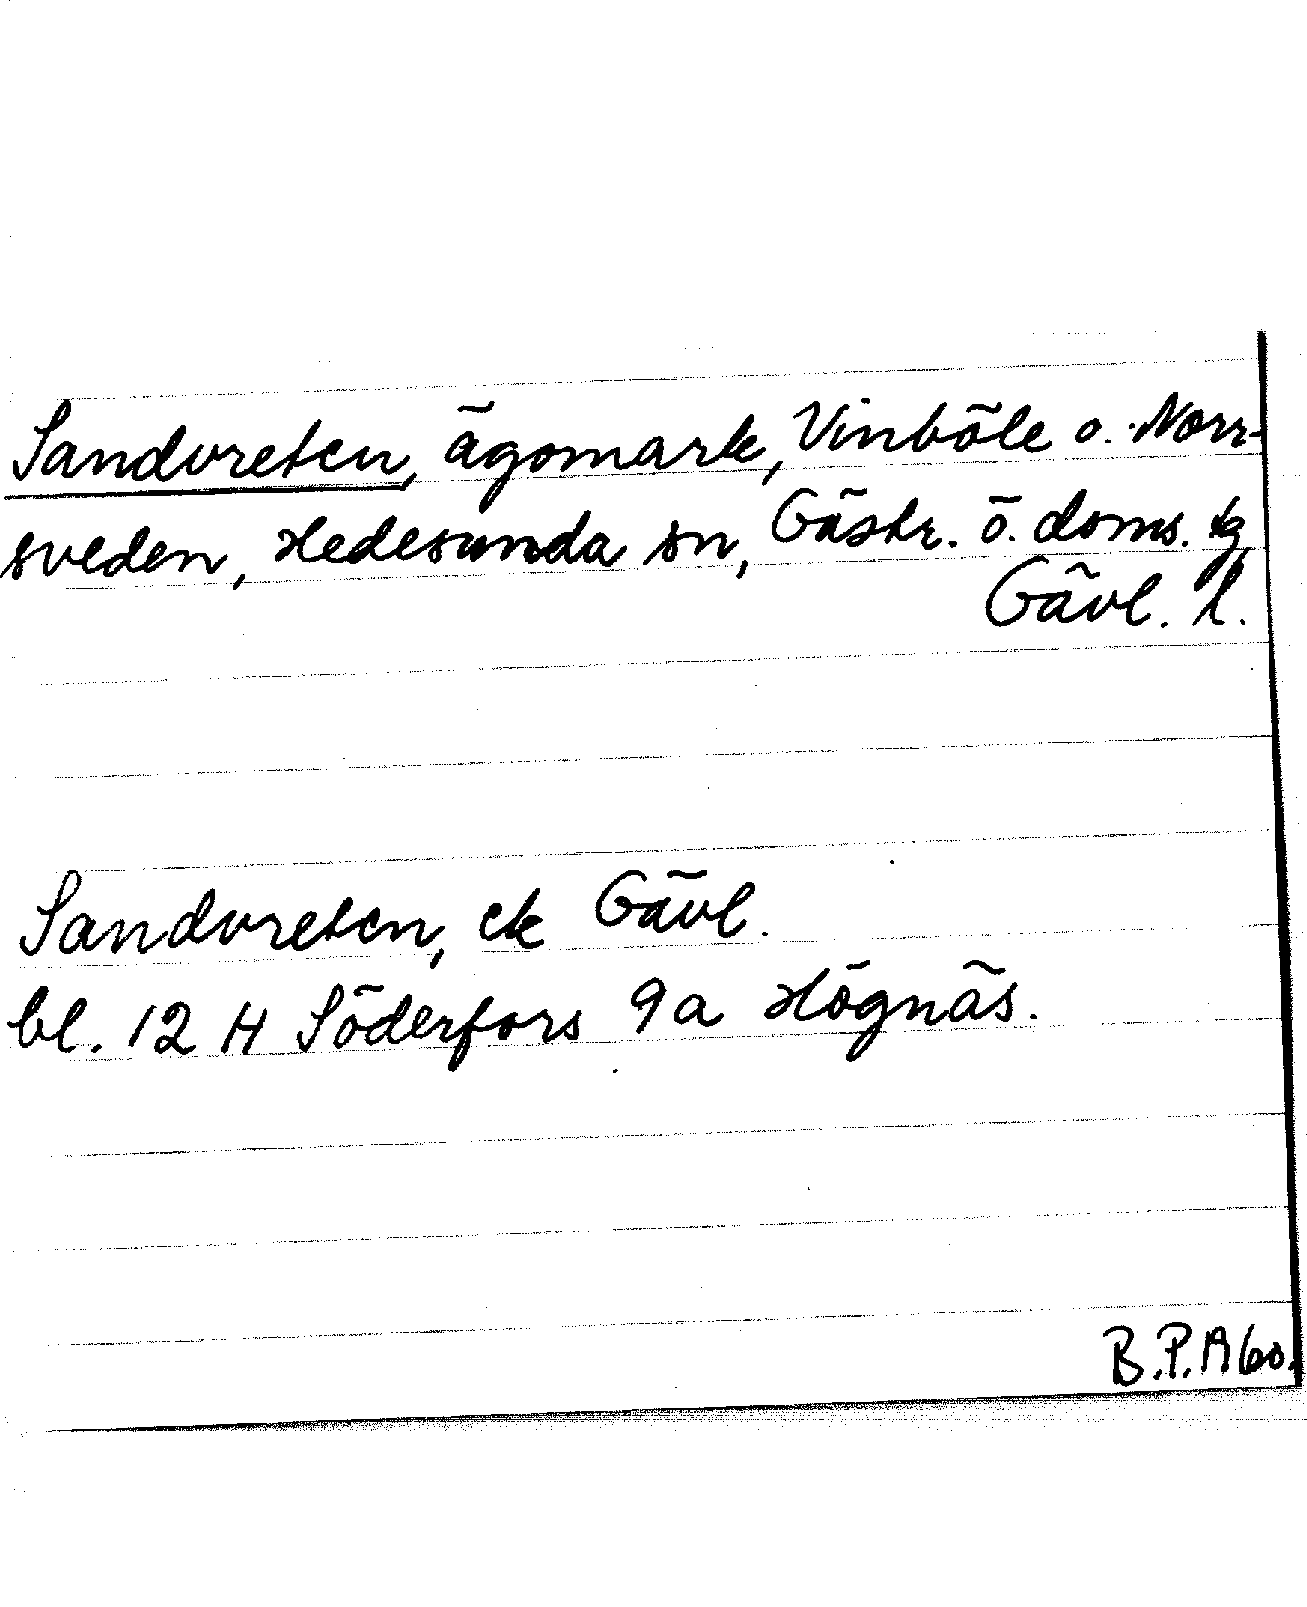 Sandvreten, ägomark, Vinböle o. Norr-
sveden, Hedesunda sn, Gästr. ö. doms. tg
Gävl. l.
Sandvreten, ek Gävl.
bl. 12 H Söderfors 9a Högnäs.
B.P.A60.